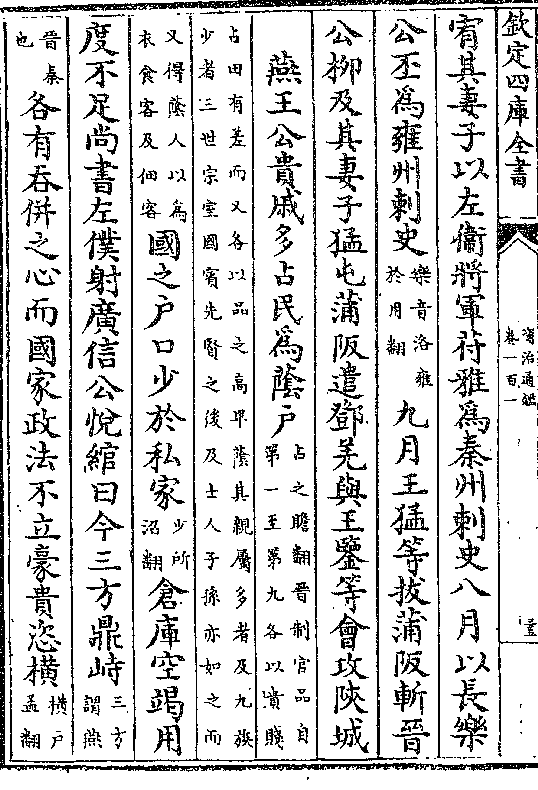 欽定四庫全書
資治通鑑
卷一百一
宥其妻子以左衛將軍苻雅為秦州刺史八月以長樂
公丕為雍州刺史樂音洛雍於用翻九月王猛等拔蒲阪斬晉
公柳及其妻子猛屯蒲阪遣鄧羌與王鑒等會攻陜城
燕王公貴戚多占民為蔭戶占之贍翻晉制官品自第一至第九各以貴賤
占田有差而又各以品之高卑蔭其親屬多者及九族少者三世宗室國賓先賢之後及士人子孫亦如之而
又得蔭人以為衣食客及佃客國之戶口少於私家少所沼翻倉庫空竭用
度不足尚書左僕射廣信公悅綰曰今三方鼎峙三方謂燕
晉秦也各有吞併之心而國家政法不立豪貴恣橫橫戶孟翻